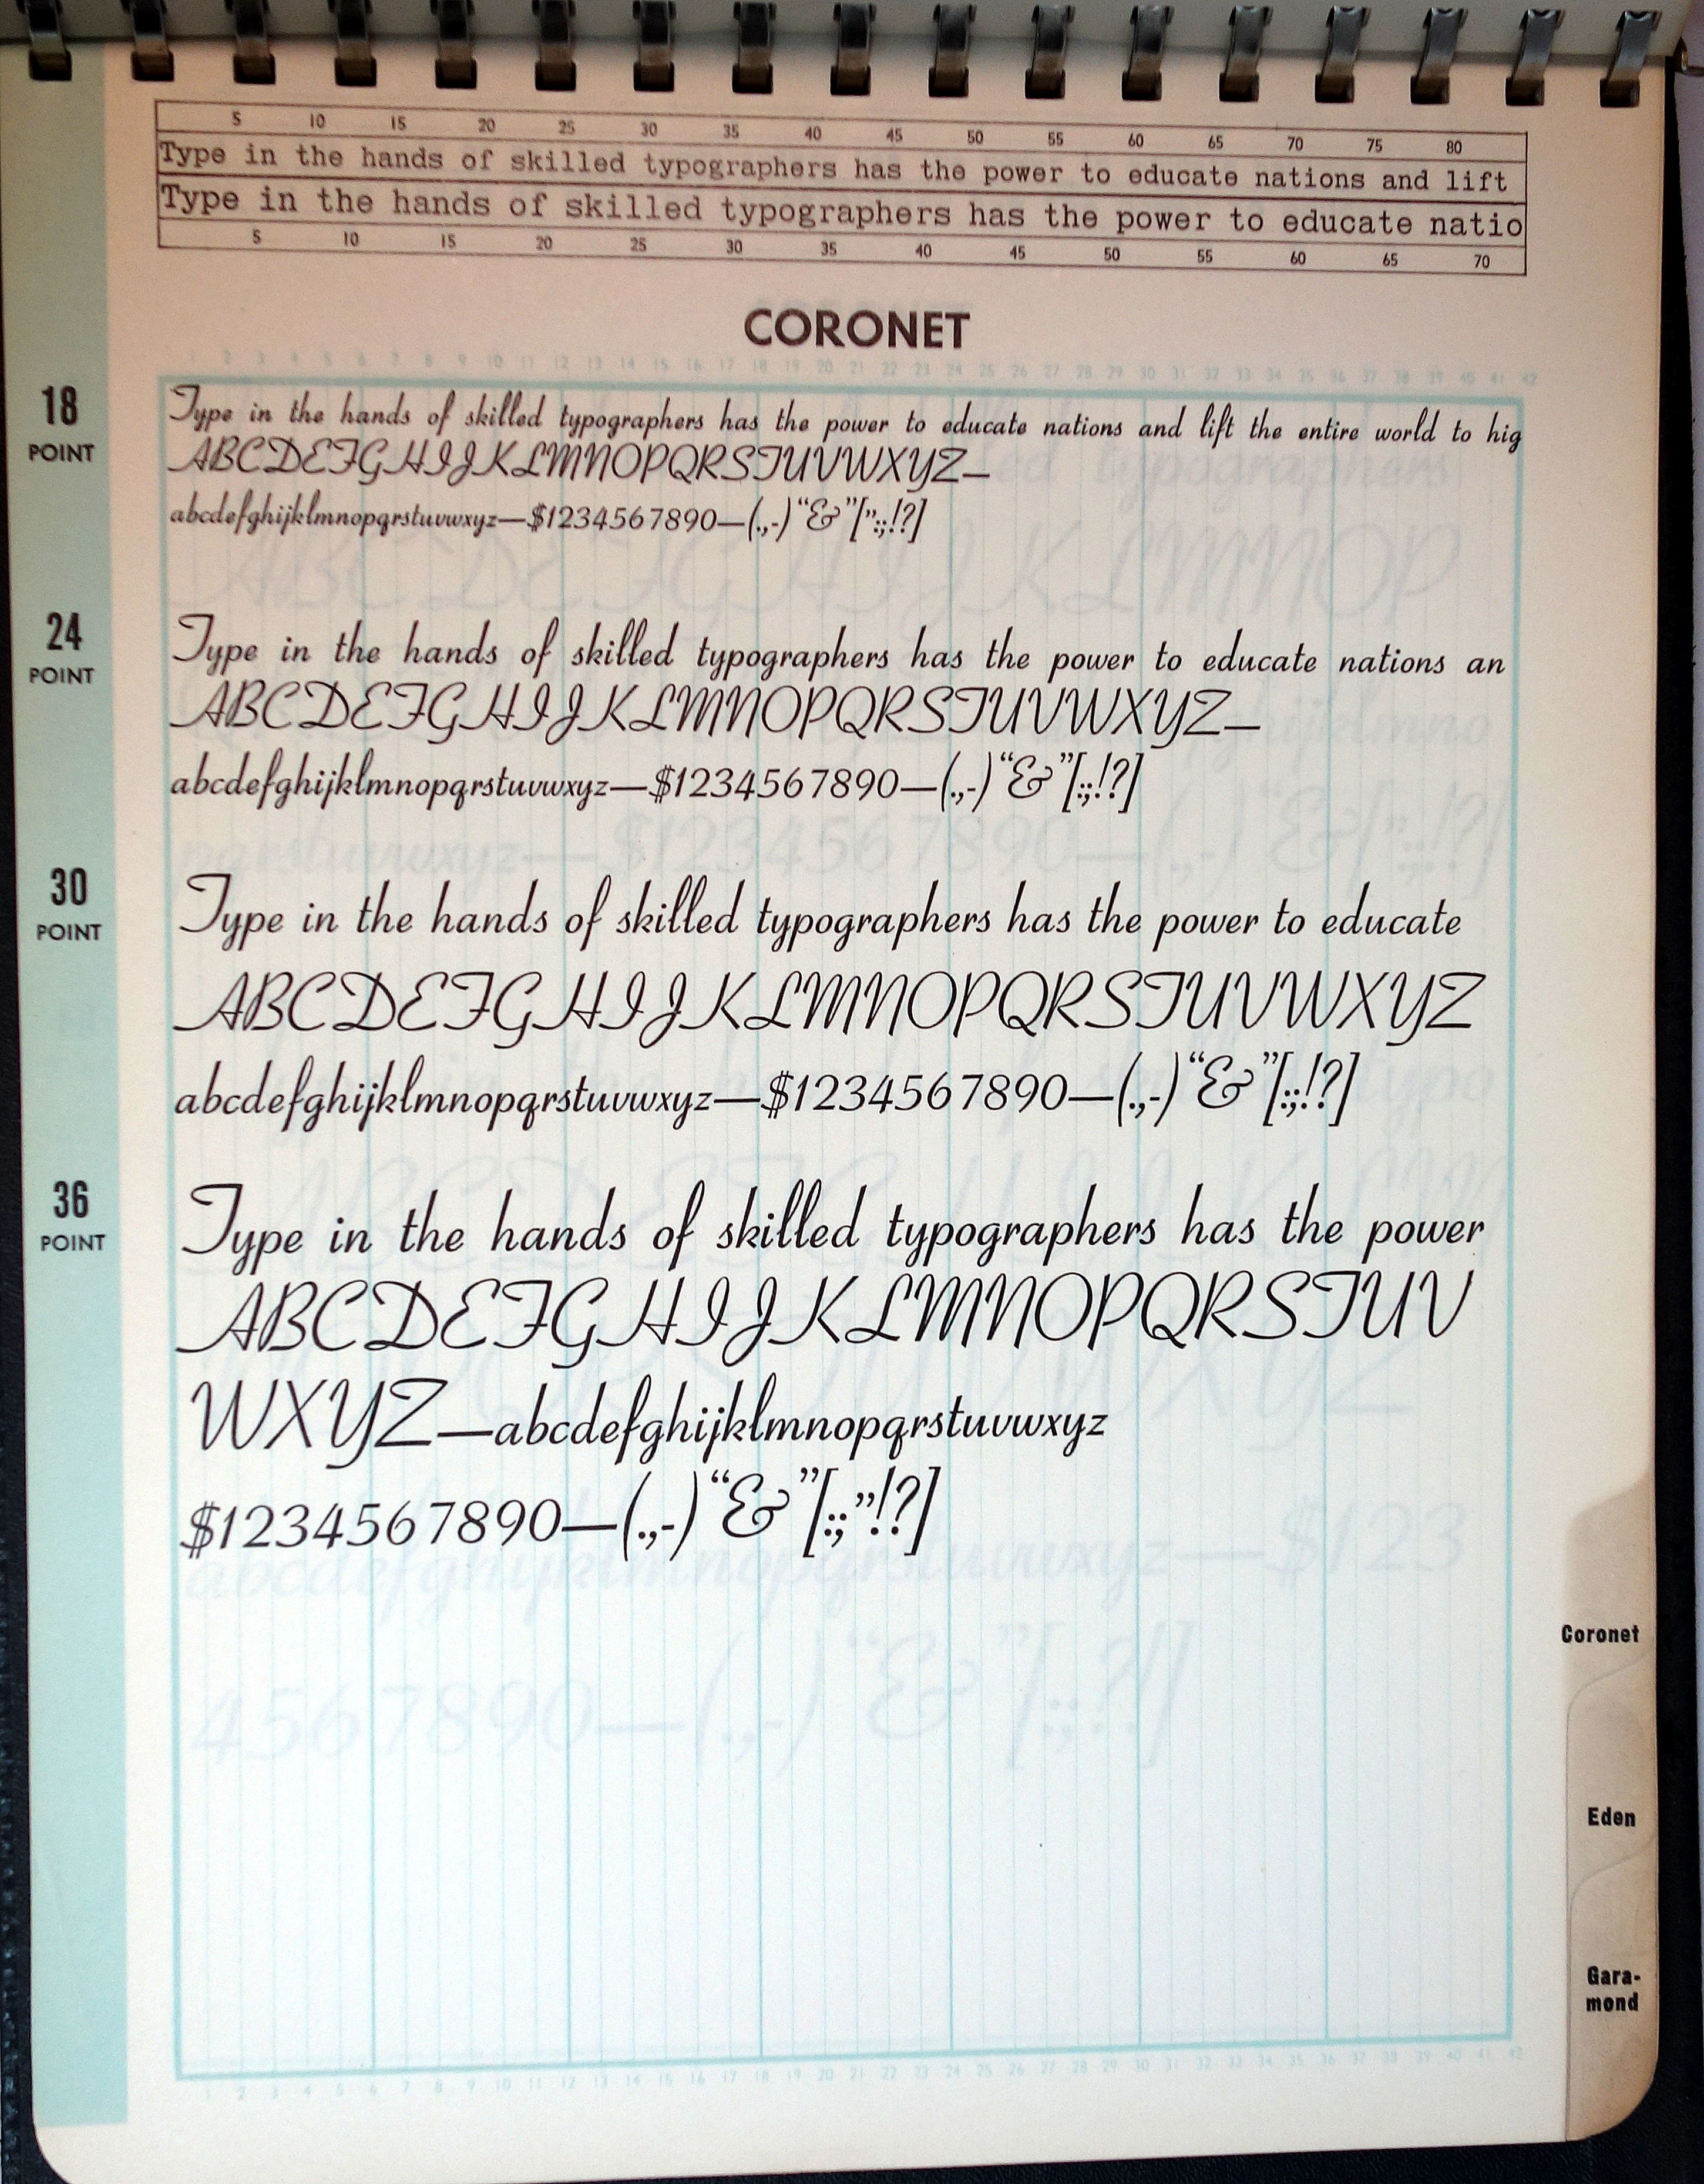 5 10 15 20 25 30 35 40 45 50 55 60 65 70 75 80
Type in the hands of skilled typographers has the power to educate nations and lift
Type in the hands of skilled typographers has the power to educate natio
5 10 15 20 25 30 35 40 45 50 55 60 65 70
CORONET
1 2 3 4 5 6 7 8 9 10 11 12 13 14 15 16 17 18 19 20 21 22 23 24 25 26 27 28 29 30 31 32 33 34 35 36 37 38 39 40 41 42
18 POINT
Type in the hands of skilled typographers has the power to educate nations and lift the entire world to hig
ABCDEFGHIJKLMNOPQRSTUVWXYZ—
abcdefghijklmnopqrstuvwxyz—$1234567890—(.,-)“&”[”:;!?]
24 POINT
Type in the hands of skilled typographers has the power to educate nations an
ABCDEFGHIJKLMNOPQRSTUVWXYZ—
abcdefghijklmnopqrstuvwxyz—$1234567890—(.,-)“&”[:;!?]
30 POINT
Type in the hands of skilled typographers has the power to educate
ABCDEFGHIJKLMNOPQRSTUVWXYZ
abcdefghijklmnopqrstuvwxyz—$1234567890—(.,-)“&”[:;!?]
36 POINT
Type in the hands of skilled typographers has the power
ABCDEFGHIJKLMNOPQRSTUV
WXYZ—abcdefghijklmnopqrstuvwxyz
$1234567890—(.,-)“&”[:;”!?]
Coronet
Eden
Gara-
mond
1 2 3 4 5 6 7 8 9 10 11 12 13 14 15 16 17 18 19 20 21 22 23 24 25 26 27 28 29 30 31 32 33 34 35 36 37 38 39 40 41 42